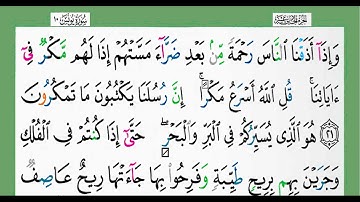 سُورَةُ يُونُسَ ١٠
وَإِذَآ أَذَقْنَا ٱلنَّاسَ رَحْمَةً مِّنۢ بَعْدِ ضَرَّآءَ مَسَّتْهُمْ إِذَا لَهُم مَّكْرٌ فِىٓ
ءَايَاتِنَا ۚ قُلِ ٱللَّهُ أَسْرَعُ مَكْرًا ۚ إِنَّ رُسُلَنَا يَكْتُبُونَ مَا تَمْكُرُونَ
﴿٢١﴾ هُوَ ٱلَّذِى يُسَيِّرُكُمْ فِى ٱلْبَرِّ وَٱلْبَحْرِ ۖ حَتَّىٰٓ إِذَا كُنتُمْ فِى ٱلْفُلْكِ
وَجَرَيْنَ بِهِم بِرِيحٍ طَيِّبَةٍ وَفَرِحُوا۟ بِهَا جَآءَتْهَا رِيحٌ عَاصِفٌ